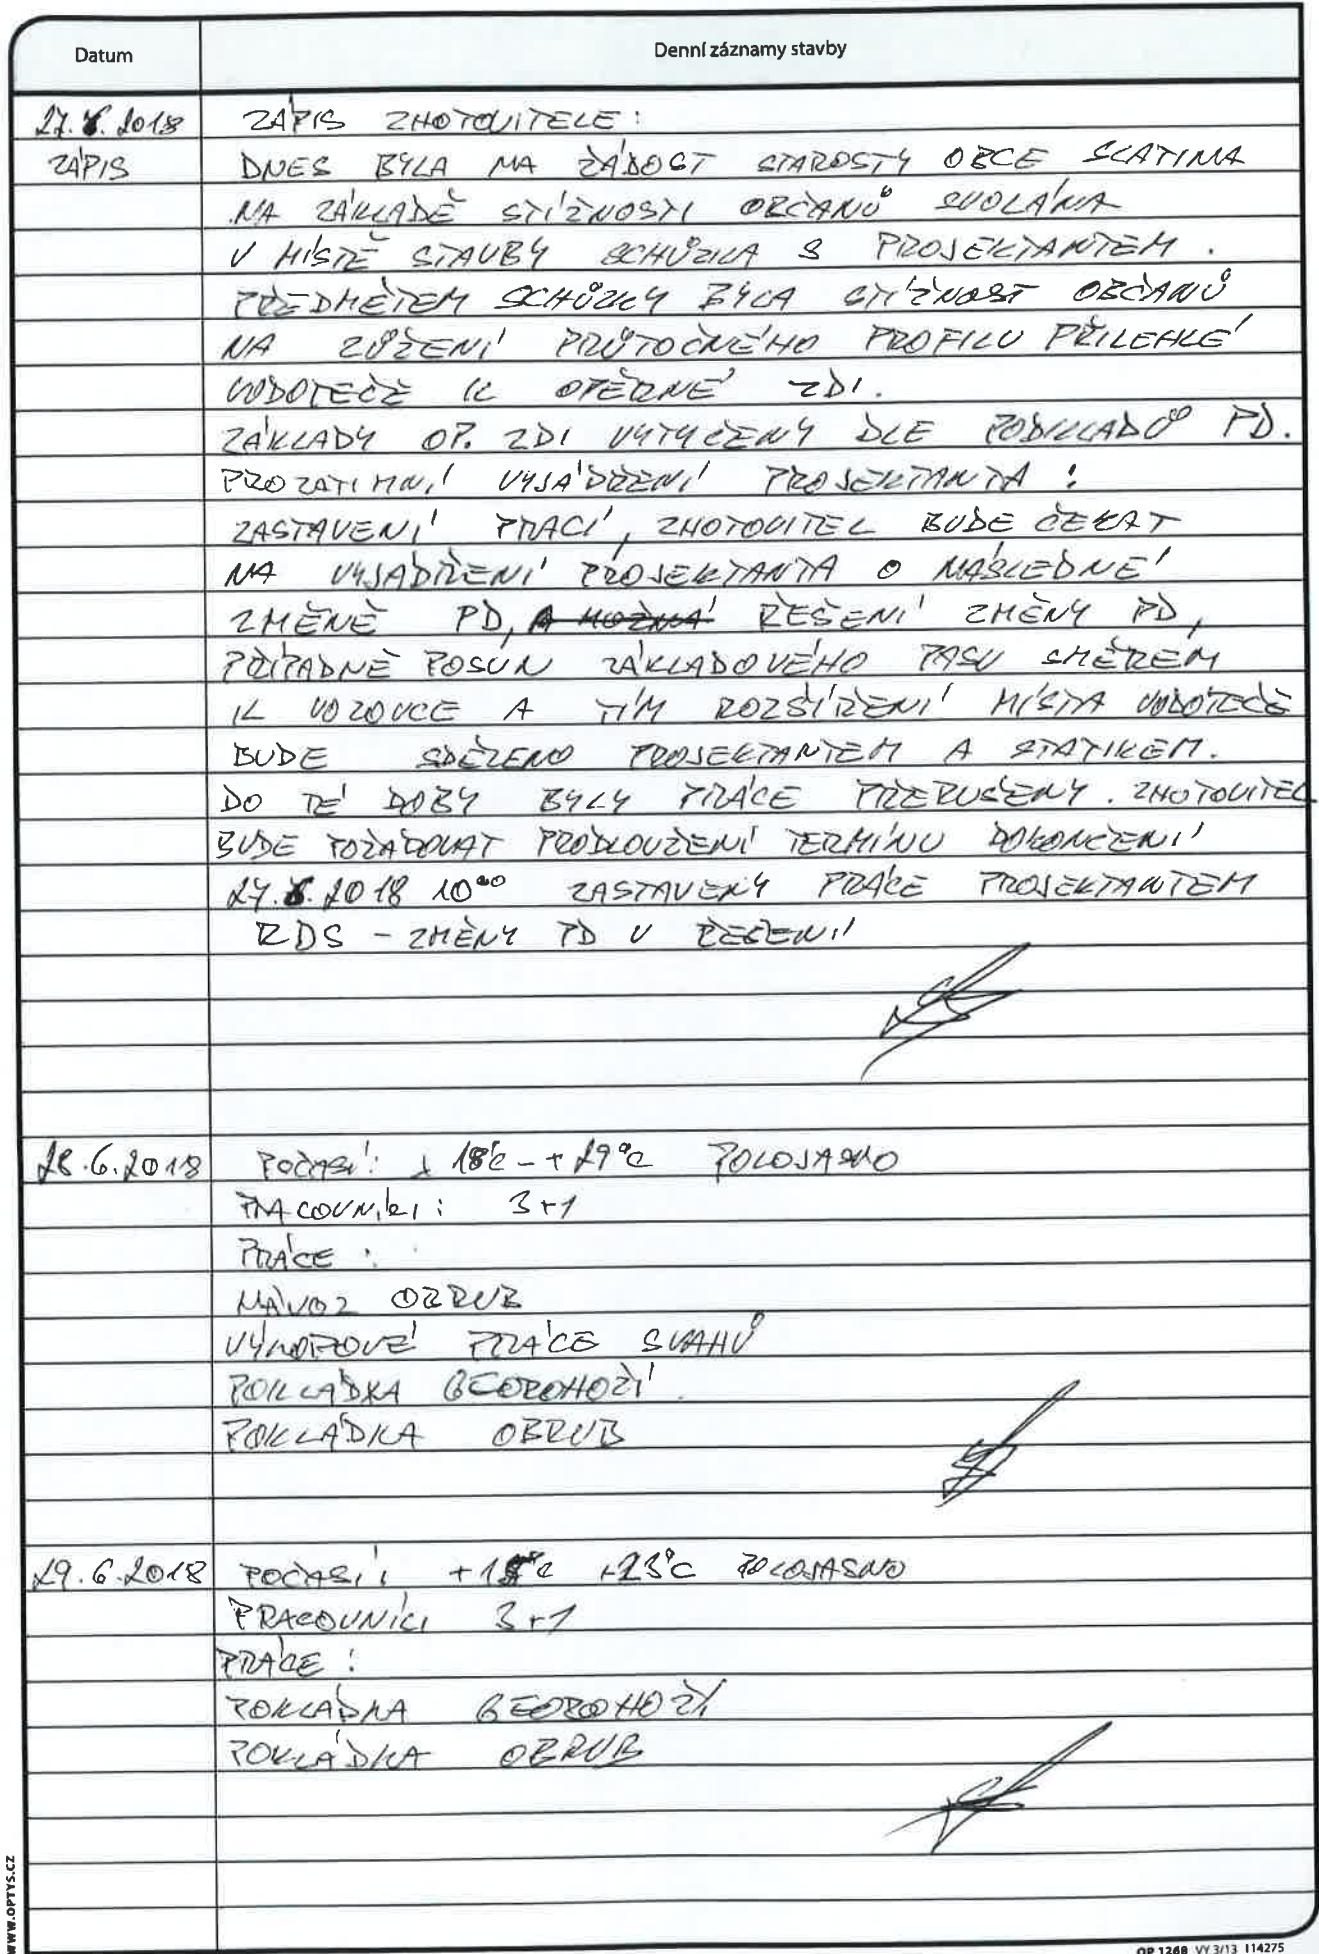 Datum Denní záznamy stavby
27.6.2018 ZÁPIS ZHOTOVITELE:
ZÁPIS DNES BYLA NA ŽÁDOST STAROSTY OBCE SLATINA
NA ZÁKLADĚ STÍŽNOSTI OBČANŮ SVOLÁNA
V MÍSTĚ STAVBY SCHŮZKA S PROJEKTANTEM.
PŘEDMĚTEM SCHŮZKY BYLA STÍŽNOST OBČANŮ
NA ZÚŽENÍ PRŮTOČNÉHO PROFILU PŘILEHLÉ
VODOTEČE K OPĚRNÉ ZDI.
ZÁKLADY OP. ZDI VYTYČENY DLE PODKLADŮ PD.
PROZATIMNÍ VYJÁDŘENÍ PROJEKTANTA:
ZASTAVENÍ PRACÍ, ZHOTOVITEL BUDE ČEKAT
NA VYJÁDŘENÍ PROJEKTANTA O NÁSLEDNÉ
ZMĚNĚ PD, A MOŽNÁ ŘEŠENÍ ZMĚNY PD,
PŘÍPADNĚ POSUN ZÁKLADOVÉHO PASU SMĚREM
K VOZOVCE A TÍM ROZŠÍŘENÍ MÍSTA VODOTEČE
BUDE SDĚLENO PROJEKTANTEM A STATIKEM.
DO TÉ DOBY BYLY PRÁCE PŘERUŠENY. ZHOTOVITEL
BUDE POŽADOVAT PRODLOUŽENÍ TERMÍNU DOKONČENÍ
27.6.2018 10⁰⁰ ZASTAVENY PRÁCE PROJEKTANTEM
RDS - ZMĚNY PD V ŘEŠENÍ
28.6.2018 POČASÍ: + 18°C - + 29°C POLOJASNO
PRACOVNÍKI: 3+1
PRÁCE:
NÁVOZ OBRUB
VÝKOPOVÉ PRÁCE SVAHŮ
POKLÁDKA GEOROHOŽÍ
POKLÁDKA OBRUB
29.6.2018 POČASÍ: +23°C POLOJASNO
PRACOVNÍCI 3+1
PRÁCE:
POKLÁDKA GEOROHOŽÍ
POKLÁDKA OBRUB
WWW.OPTYS.CZ
OP 1268 VY 3/13 114275